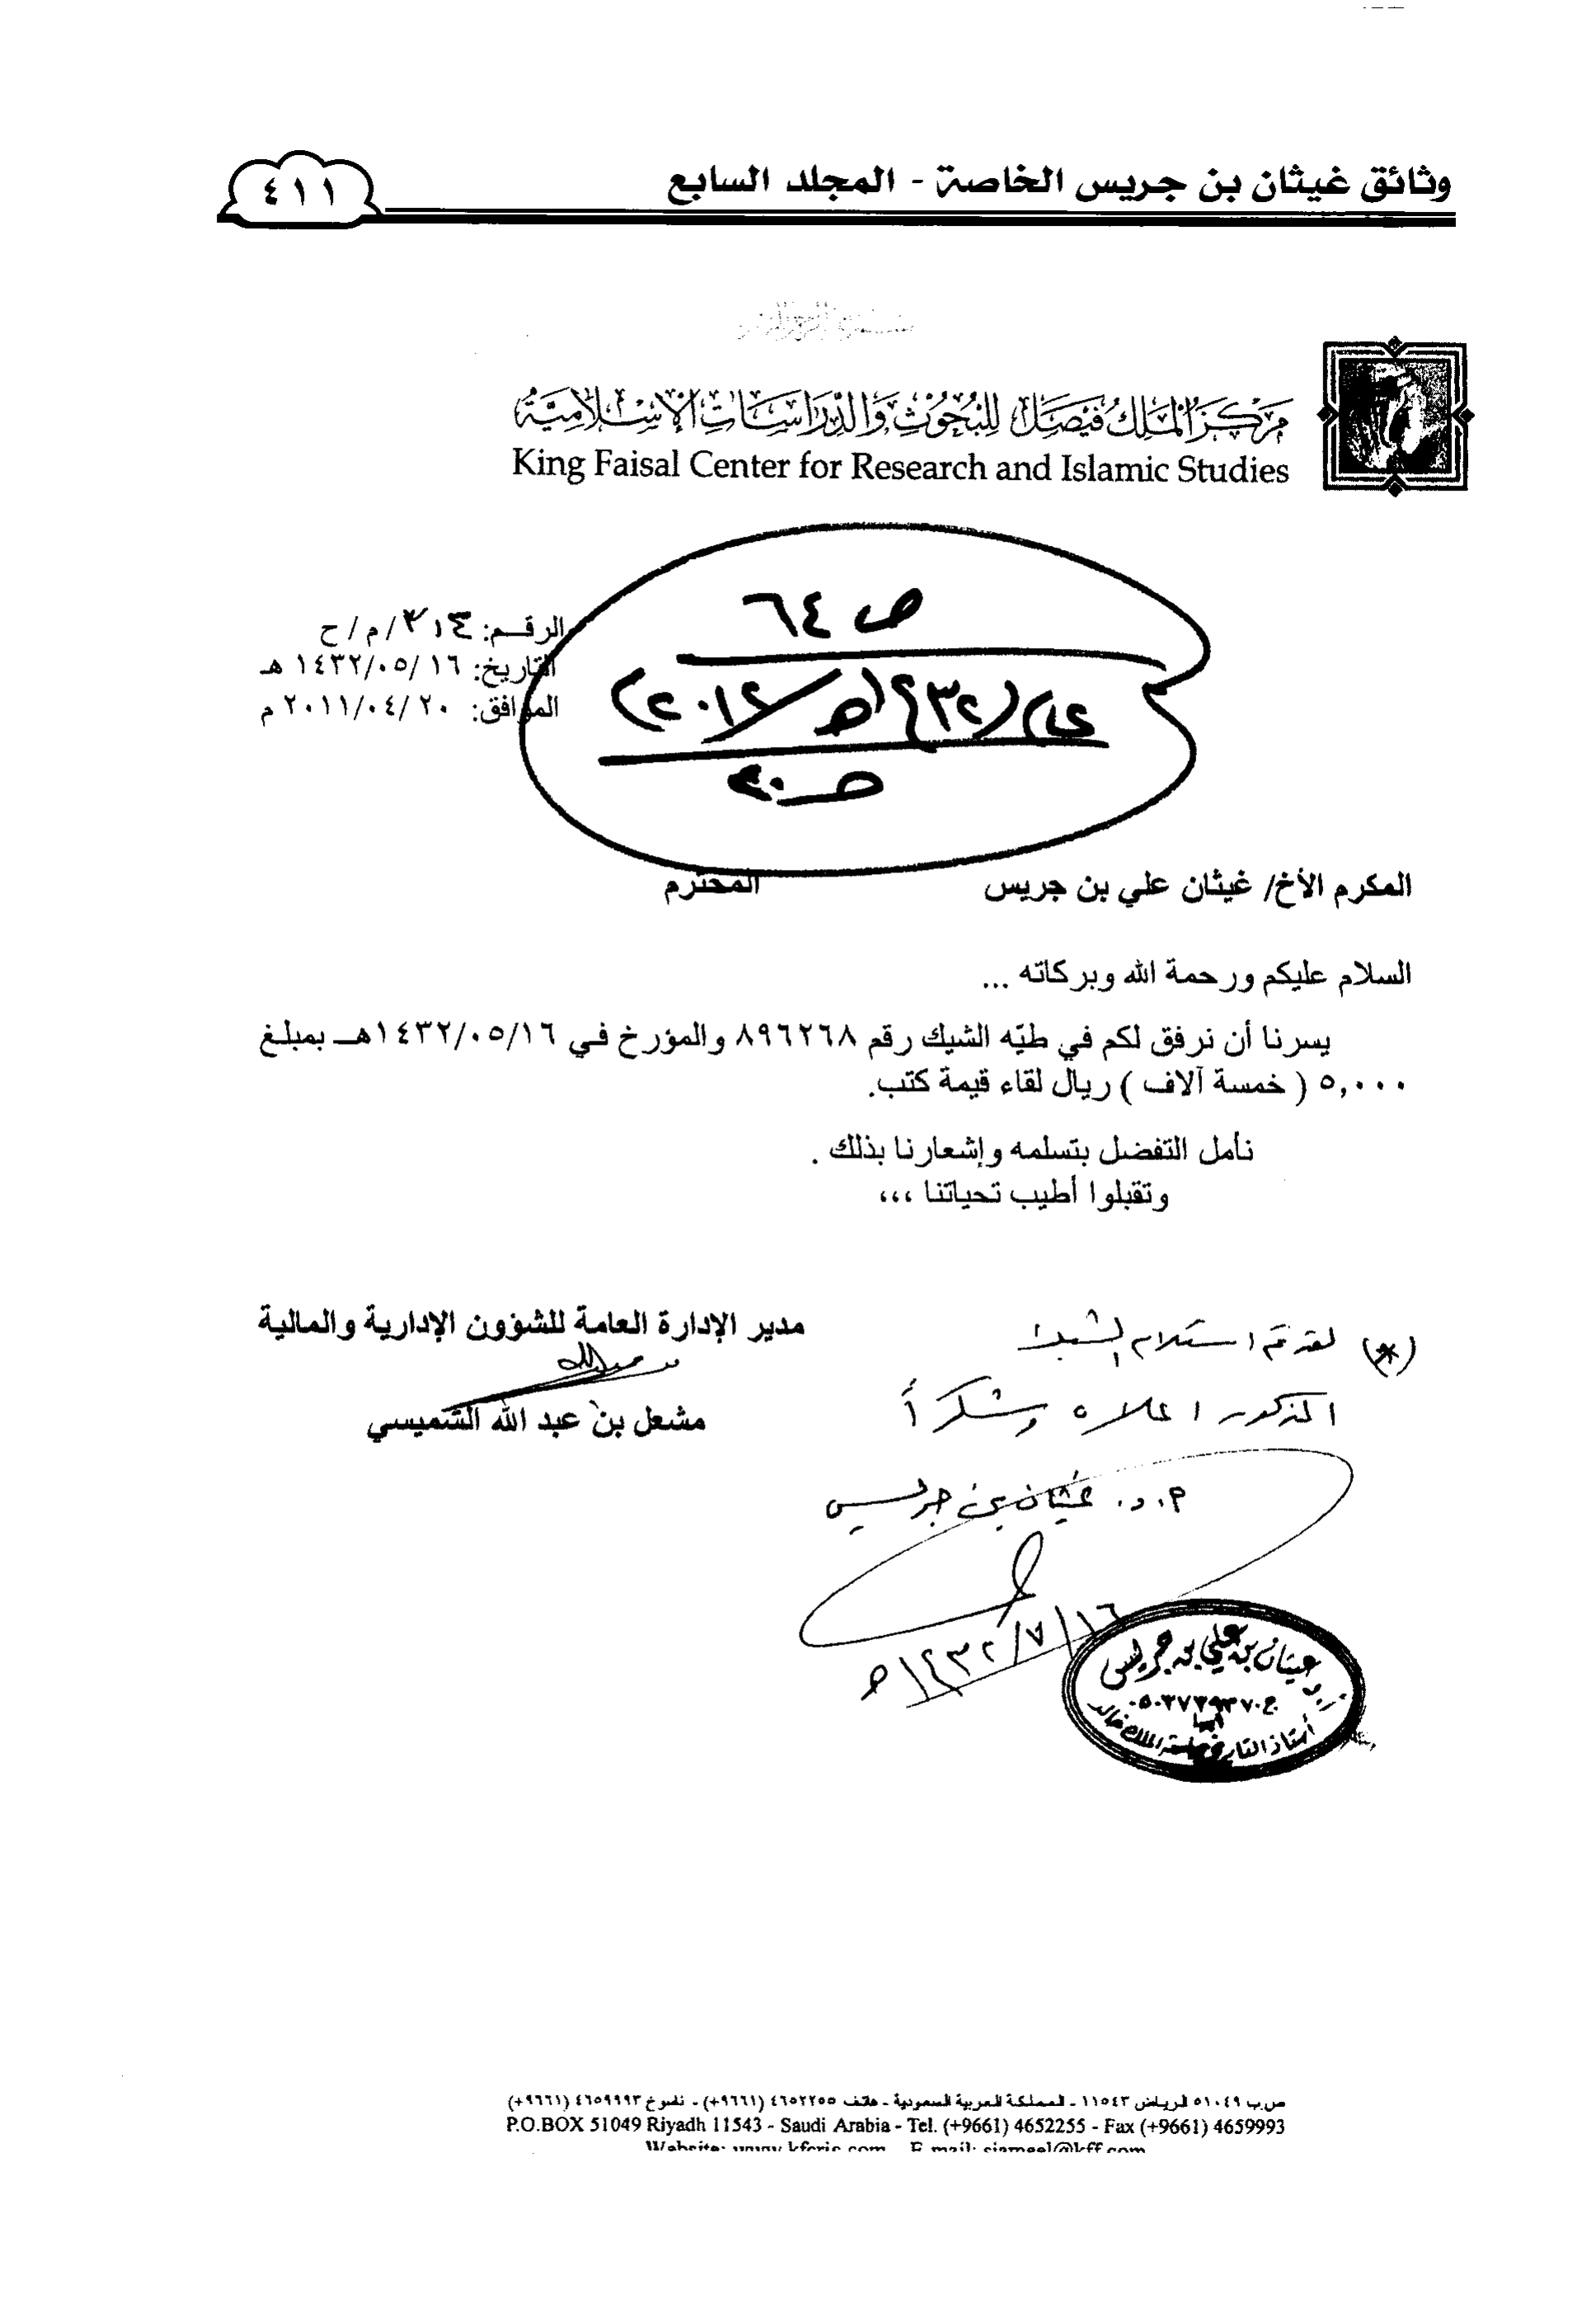 وثائق غيثان بن جريس الخاصة - المجلد السابع
٤١١
مركز الملك فيصل للبحوث والدراسات الإسلامية
King Faisal Center for Research and Islamic Studies
الرقم: /م/ح
التاريخ: ١٤٣٢/٠٥/١٦ هـ
الموافق: ٢٠١١/٠٤/٢٠ م
ص ٦٤
المكرم الأخ/ غيثان علي بن جريس المحترم
السلام عليكم ورحمة الله وبركاته ...
يسرنا أن نرفق لكم في طيّه الشيك رقم ٨٩٦٢٦٨ والمؤرخ في ١٤٣٢/٠٥/١٦هـ بمبلغ
٥,٠٠٠ ( خمسة آلاف ) ريال لقاء قيمة كتب.
نأمل التفضل بتسلمه وإشعارنا بذلك .
وتقبلوا أطيب تحياتنا ،،،
مدير الإدارة العامة للشؤون الإدارية والمالية
مشعل بن عبد الله الشميسي
(*) لقد تم استلام الشيك
المذكور اعلاه وشكراً
أ.د. غيثان بن جريس
١٤٣٢/٧/١٦هـ
غيثان بن علي بن جريس
أبها
أستاذ التاريخ بجامعة الملك خالد
ص.ب ٥١٠٤٩ الرياض ١١٥٤٣ - المملكة العربية السعودية - هاتف ٤٦٥٢٢٥٥ (٩٦٦١+) - ناسوخ ٤٦٥٩٩٩٣ (٩٦٦١+)
P.O.BOX 51049 Riyadh 11543 - Saudi Arabia - Tel. (+9661) 4652255 - Fax (+9661) 4659993
Website: www.kfcris.com E.mail: